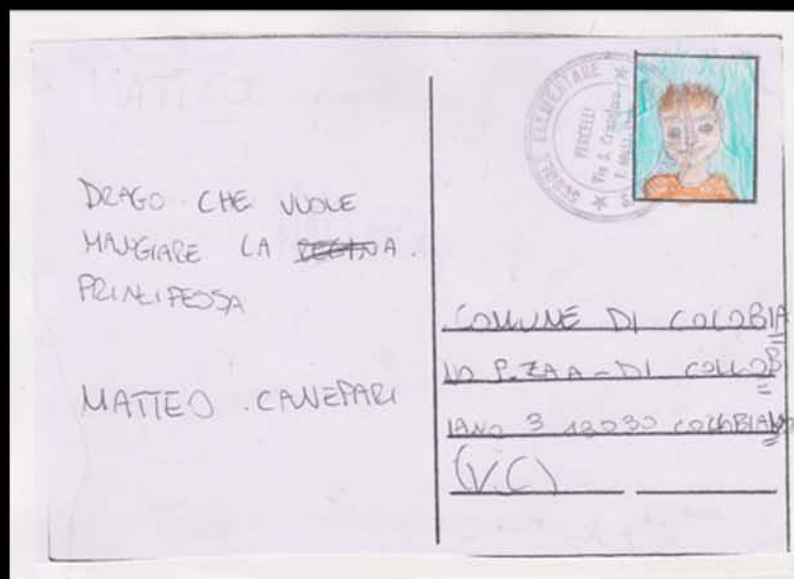 DRAGO CHE VUOLE
MANGIARE LA REGINA.
PRINCIPESSA
MATTEO CANEPARI
SCUOLE ELEMENTARE
VERCELLI
COMUNE DI COLOBIA
NO P.ZA A-DI COLLOB
IANO 3 13030 COLLOBIANO
(V.C)